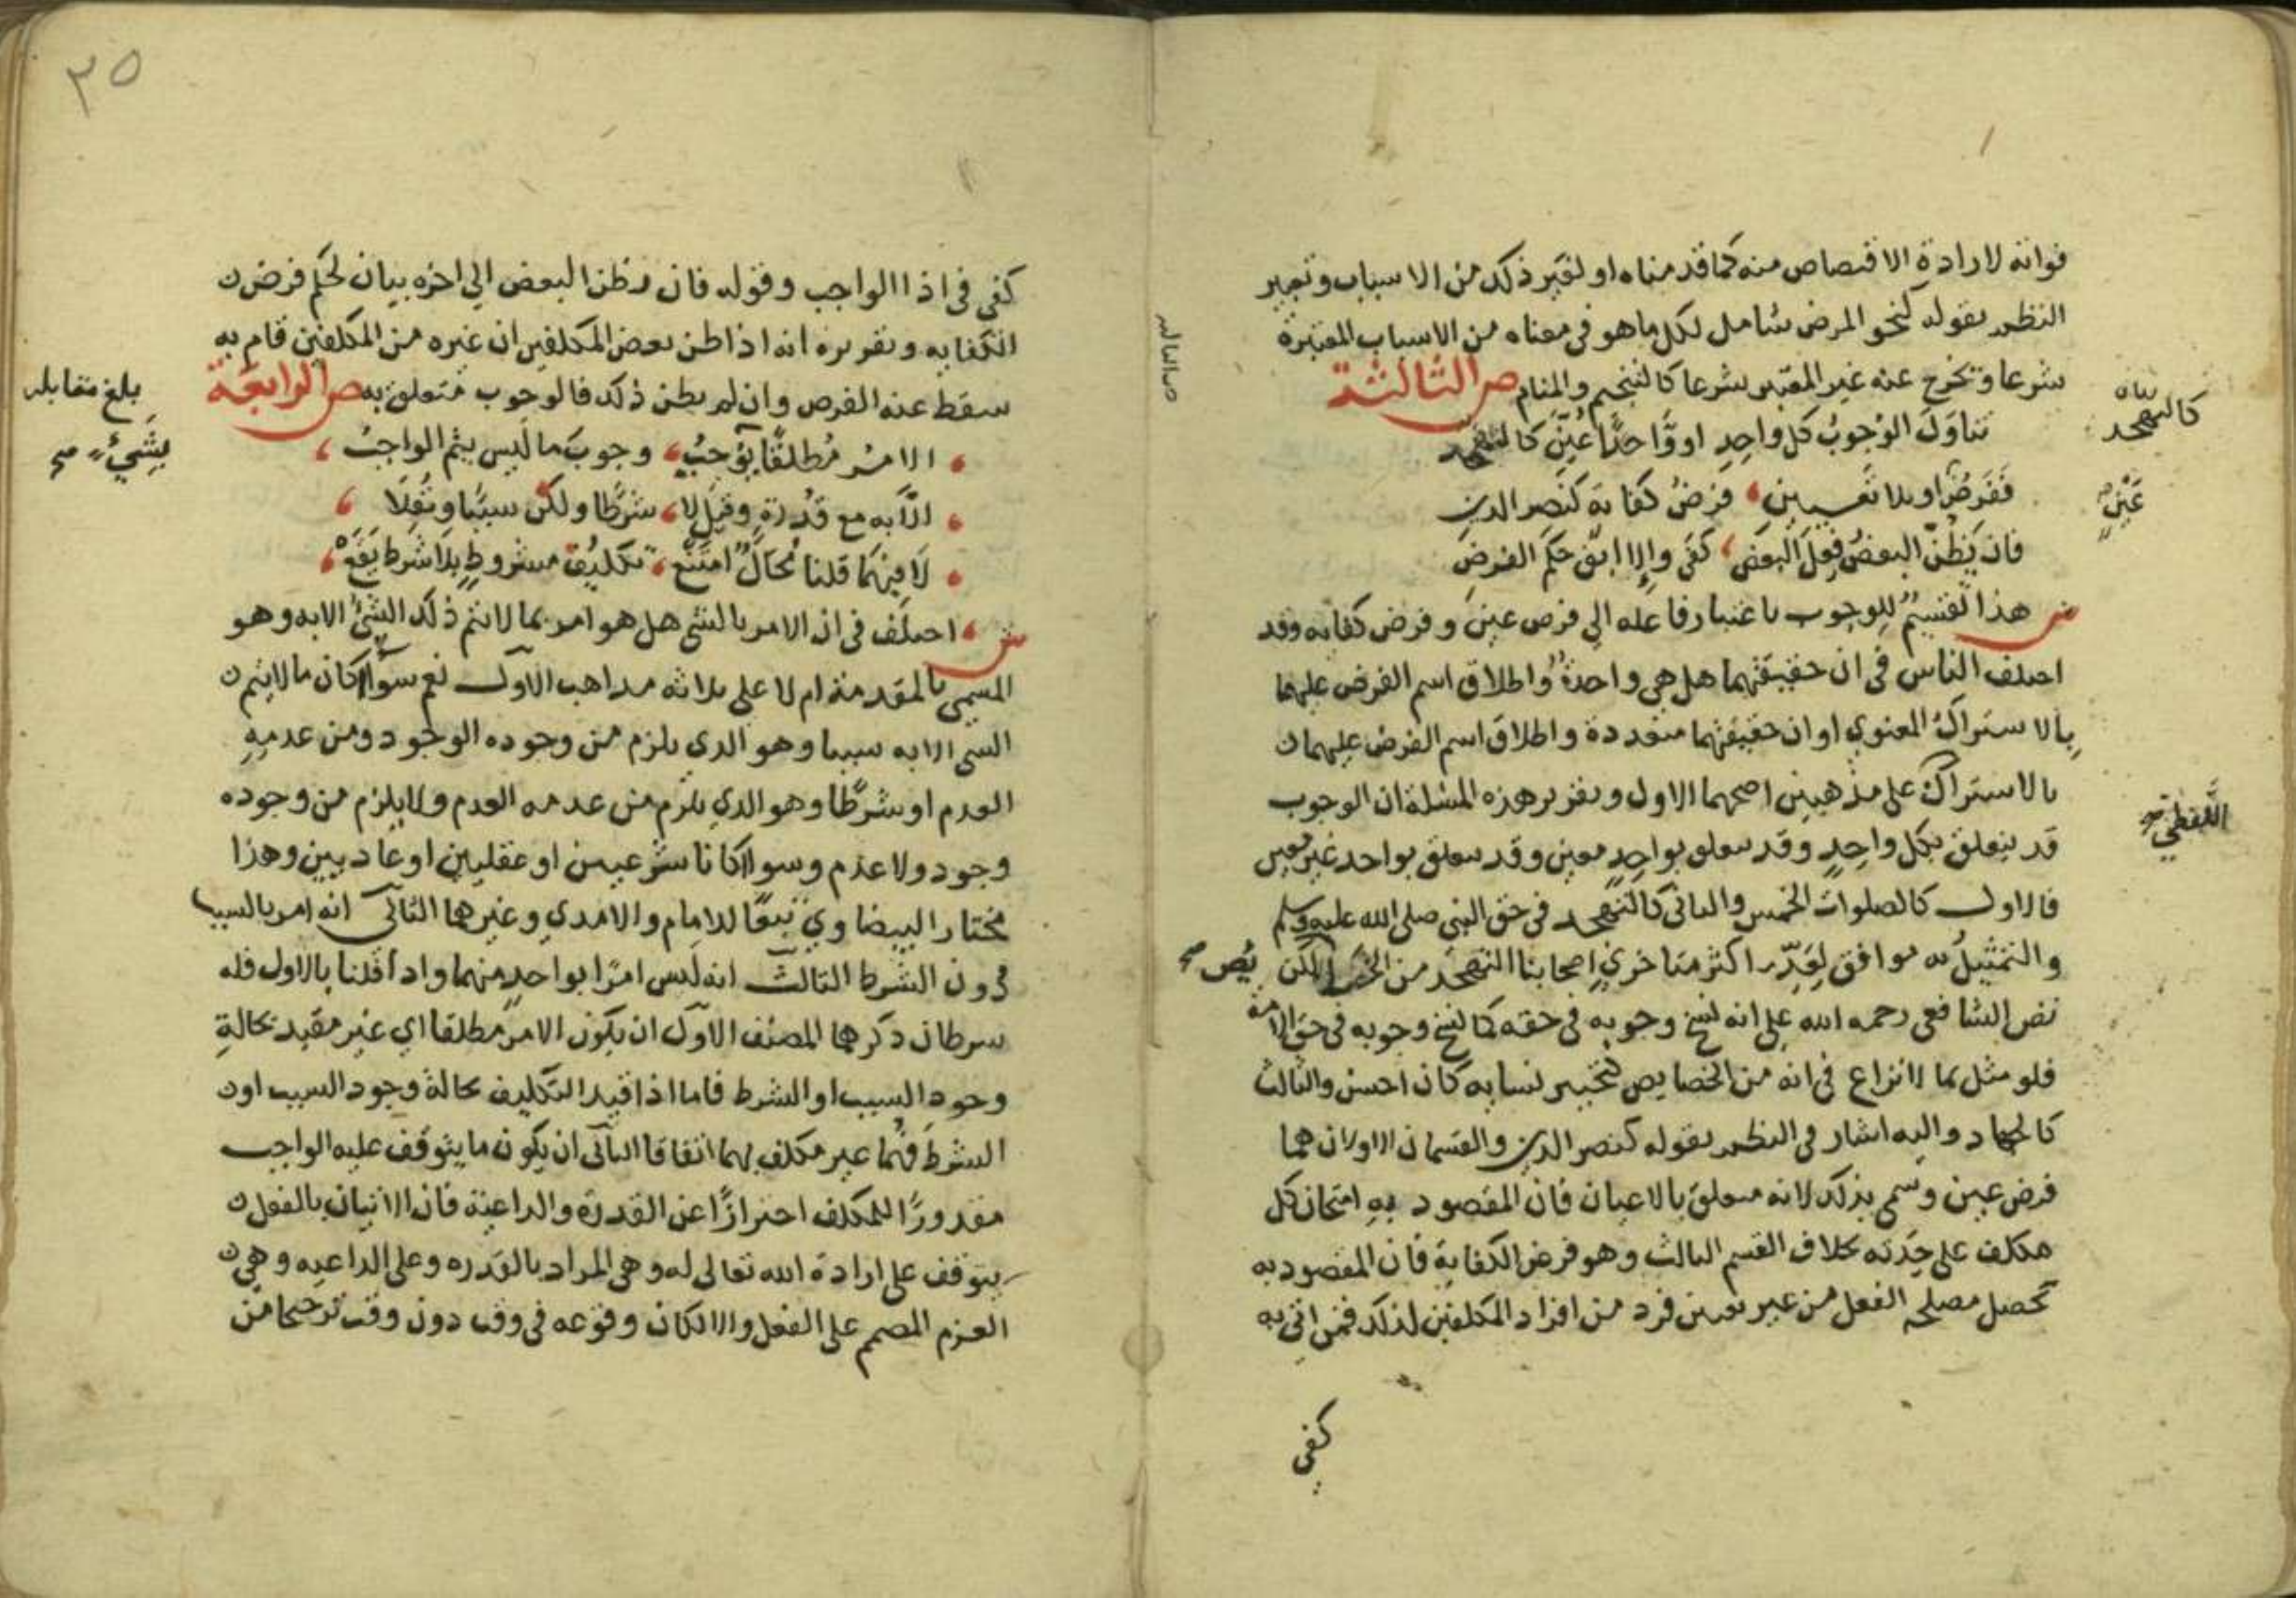 فواته لارادة الاقتصاص منه كما قدمناه او لغير ذلك من الاسباب وتعبير
النظم بقوله كنحو المرض شامل لكل ما هو في معناه من الاسباب المعتبرة
شرعا وتخرج عنه غير المعتبر شرعا كالتنجيم والمنام ص الثالثة
تناول الوجوب كل واحد او واحدا عين كالتهجد
ففرض او بلا تعيين فرض كفاية كنصر الدين
فان يظن البعض فعل البعض كفى والا ابق حكم الفرض
ش هذا تقسيم للوجوب باعتبار فاعله الي فرض عين وفرض كفايه وقد
اختلف الناس في ان حقيقتهما هل هي واحدة واطلاق اسم الفرض عليهما
بالاشتراك المعنوي او ان حقيقتهما متعددة واطلاق اسم الفرض عليهما
بالاشتراك على مذهبين اصحهما الاول وتقرير هذه المسئلة ان الوجوب
قد يتعلق بكل واحد وقد يتعلق بواحد معين وقد يتعلق بواحد غير معين
فالاول كالصلوات الخمس والثاني كالتهجد في حق النبي صلى الله عليه وسلم
والتمثيل به موافق لعد اكثر متاخري اصحابنا التهجد من لكن
نص الشافعي رحمه الله على انه نسخ وجوبه في حقه كما نسخ وجوبه في حق الامة
فلو مثل بما لا نزاع في انه من الخصايص كتخيير نسايه كان احسن والثالث
كالجهاد واليه اشار في النظم بقوله كنصر الدين والقسمان الاولان هما
فرض عين وسمي بذلك لانه متعلق بالاعيان فان المقصود به امتحان كل
مكلف على حدته بخلاف القسم الثالث وهو فرض الكفاية فان المقصود به
تحصل مصلحه الفعل من غير تعيين فرد من افراد المكلفين لذلك فمن اتى به
كفى
كالتهجد
عين
اللفظي صح
كفى في اذا الواجب وقوله فان يظن البعض الي اخره بيان لحكم فرض
الكفايه وتقريره انه اذا ظن بعض المكلفين ان غيره من المكلفين قام به
سقط عنه الفرض وان لم يظن ذلك فالوجوب متعلق به ص الرابعة
الامر مطلقا يوجب وجوب ما ليس يتم الواجب
الا به مع قدرة وقيل لا شرطا ولكن سببا ونقلا
لا فيهما قلنا محال امتنع تكليف مشروط بلا شرط يقع
ش اختلف في ان الامر بالشي هل هو امر بما لا يتم ذلك الشئ الا به وهو
المسمى بالمقدمة ام لا على ثلاثه مذاهب الاول نعم سواء كان ما لا يتم
الشي الا به سببا وهو الذي يلزم من وجوده الوجود ومن عدمه
العدم او شرطا وهو الذي يلزم من عدمه العدم ولا يلزم من وجوده
وجود ولا عدم وسواء كانا شرعيين او عقليين او عاديين وهذا
مختار البيضاوي تبعا للامام والامدي وغيرهما الثاني انه امر بالسبب
دون الشرط الثالث انه ليس امرا بواحد منهما واذا قلنا بالاول فله
شرطان ذكرهما المصنف الاول ان يكون الامر مطلقا اي غير مقيد بحالة
وجود السبب او الشرط فاما اذا قيد التكليف بحالة وجود السبب او
الشرط فهما غير مكلف بهما اتفاقا الثاني ان يكون ما يتوقف عليه الواجب
مقدورا للمكلف احترازا عن القدرة والداعية فان الاتيان بالفعل
يتوقف على ارادة الله تعالى له وهي المراد بالقدره وعلى الداعيه وهي
العزم المصمم على الفعل والا لكان وقوعه في وقت دون وقت ترجيحا من
بلغ مقابله
بشيء صح
٣٥